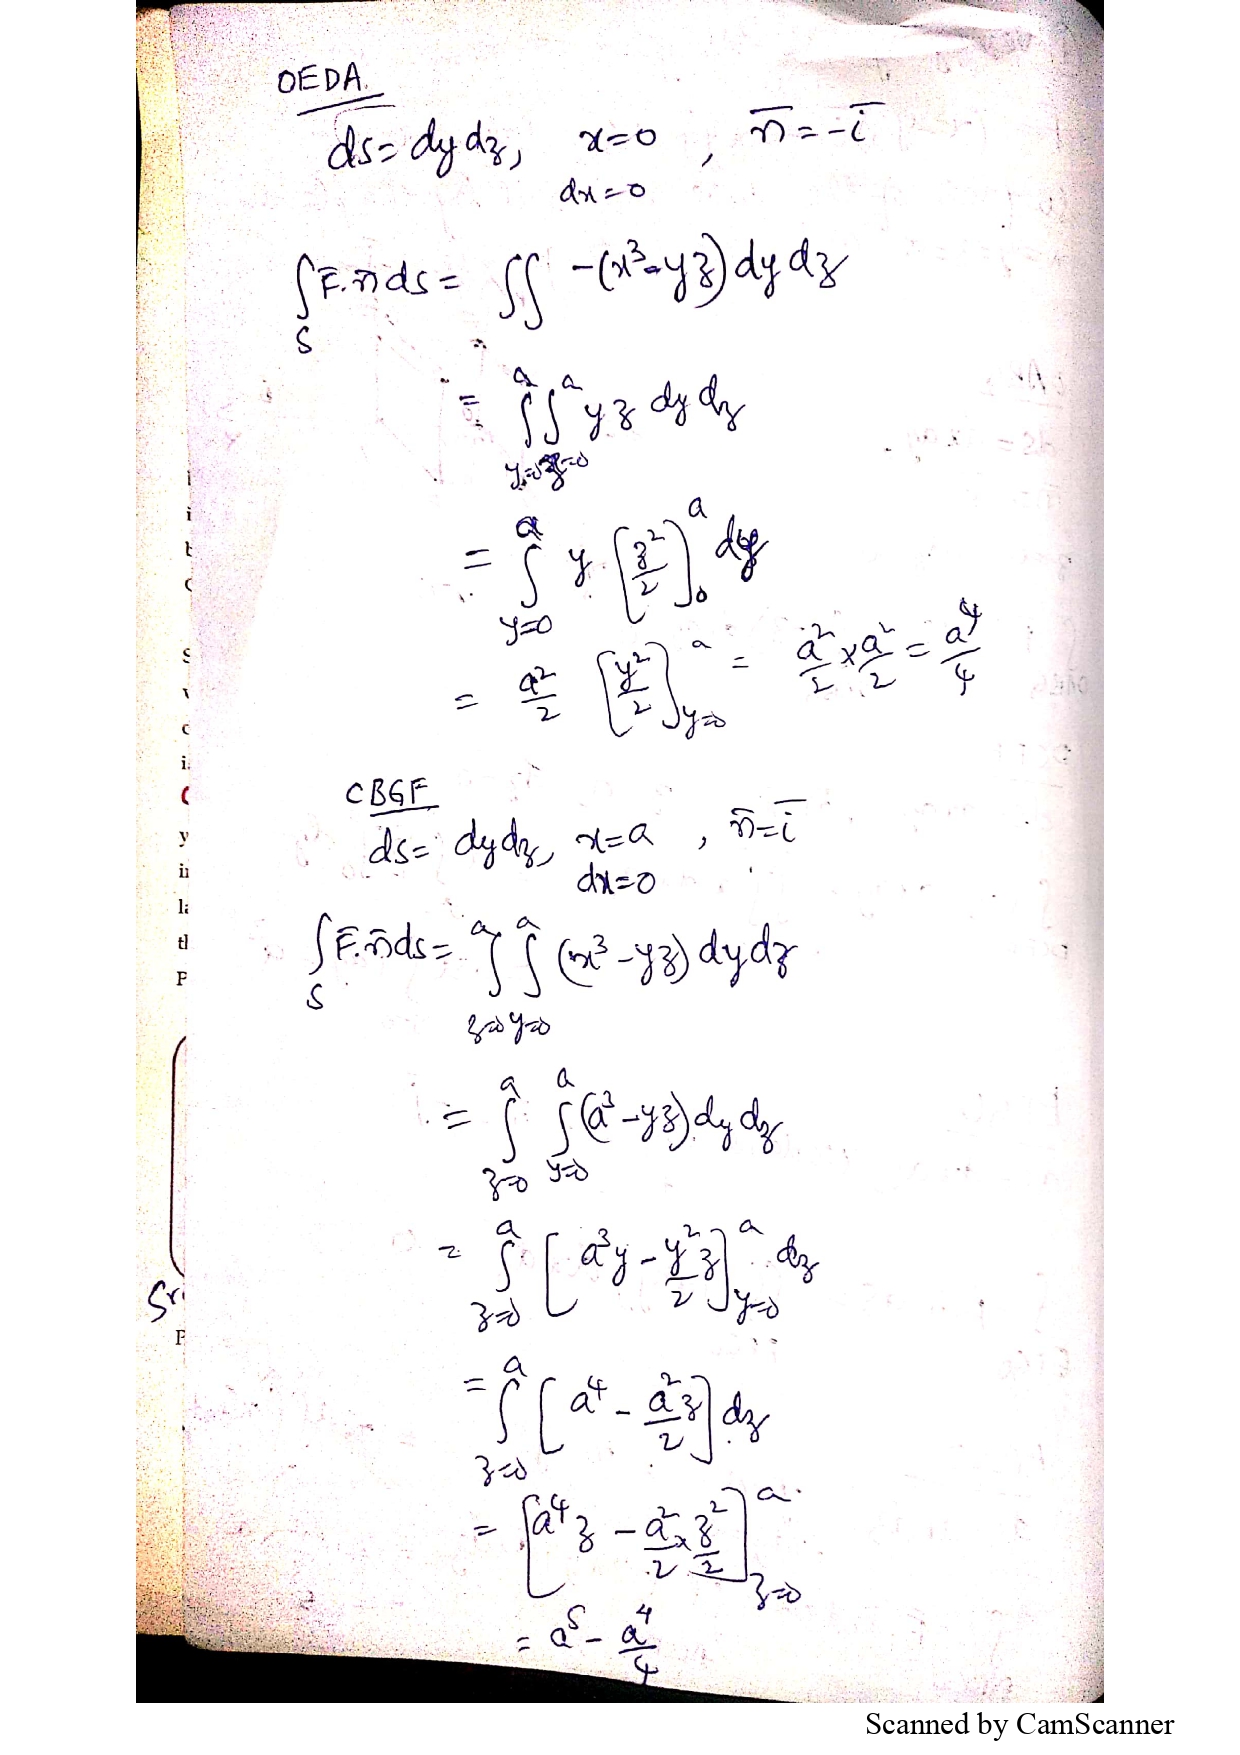 OEDA.
ds= dy dz, x=0 , n̅=-i̅
dx=0
∫_S F̅.n̅ ds = ∫∫ -(x³-yz) dy dz
= ∫_{y=0}^{a} ∫_{z=0}^{a} yz dy dz
= ∫_{y=0}^{a} y [z²/2]_0^a dy
= a²/2 [y²/2]_{y=0}^{a} = a²/2 × a²/2 = a⁴/4
CBGF
ds= dy dz, x=a , n̅=i̅
dx=0
∫_S F̅.n̅ ds = ∫_{z=0}^{a} ∫_{y=0}^{a} (x³-yz) dy dz
= ∫_{z=0}^{a} ∫_{y=0}^{a} (a³-yz) dy dz
= ∫_{z=0}^{a} [a³y - y²/2 z]_{y=0}^{a} dz
= ∫_{z=0}^{a} [a⁴ - a²/2 z] dz
= [a⁴z - a²/2 × z²/2]_{z=0}^{a}
= a⁵ - a⁴/4
Scanned by CamScanner